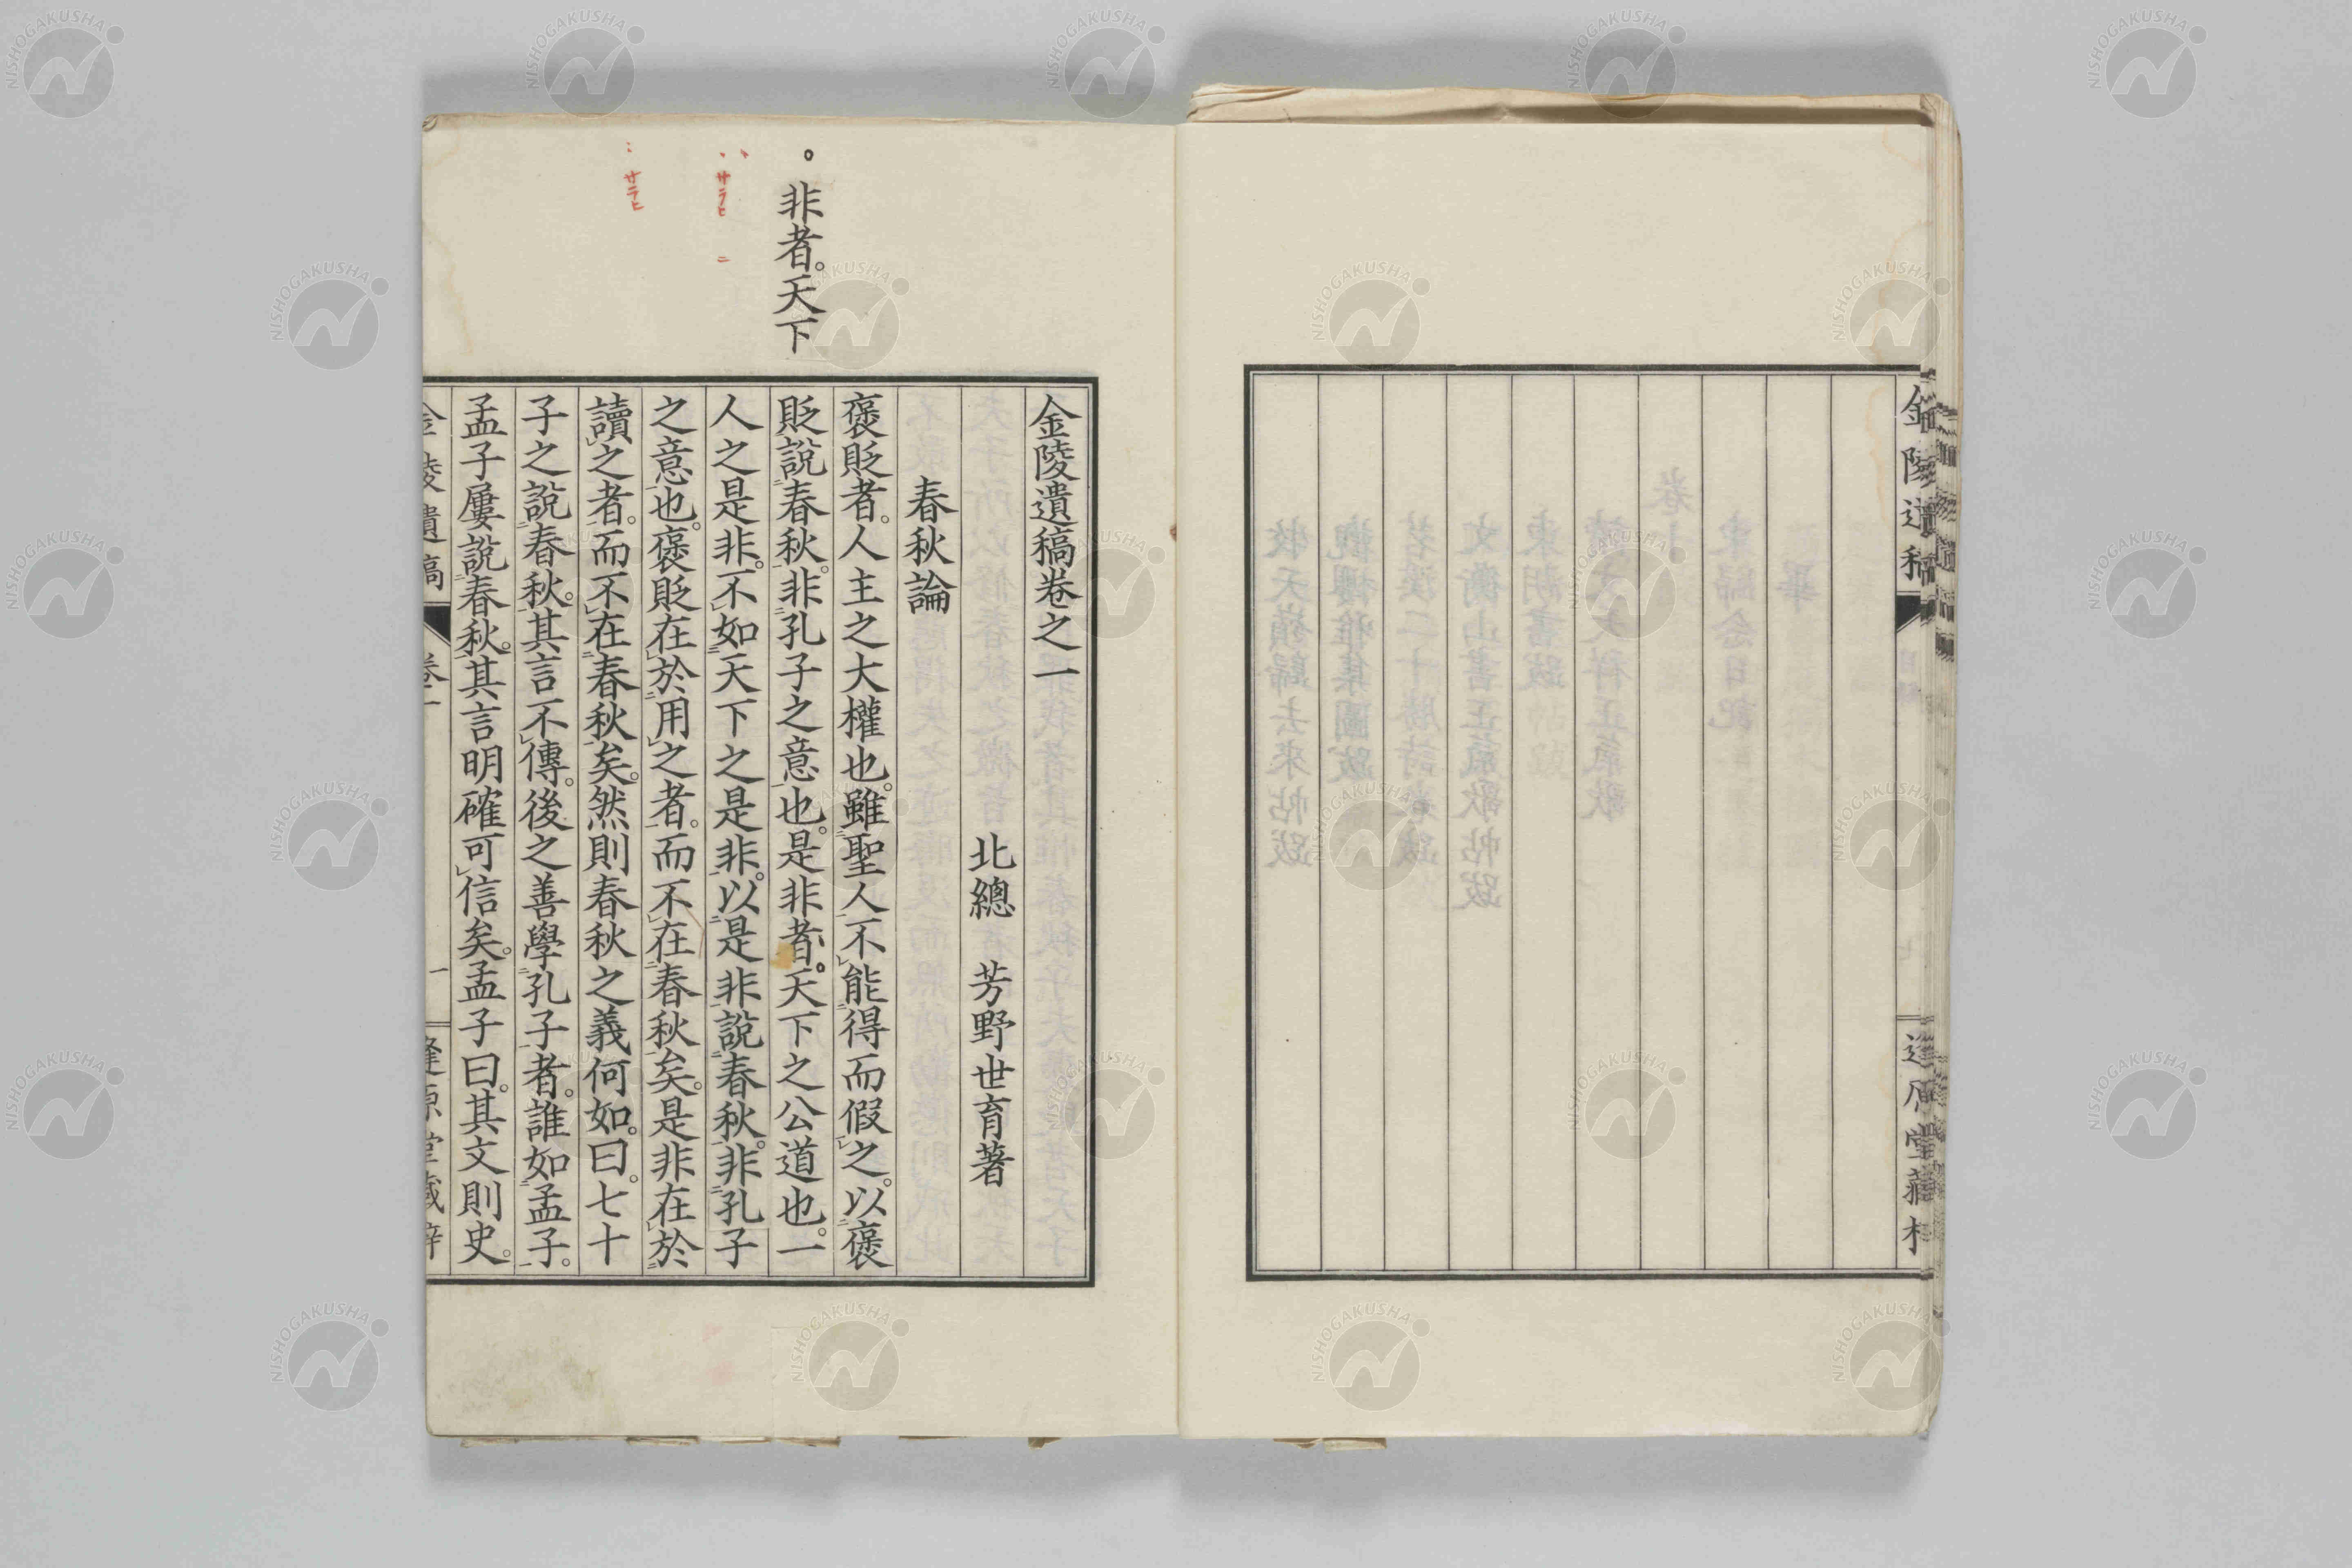 金陵遺稿
逢原堂藏梓
金陵遺稿卷之一
北總 芳野世育著
春秋論
褒貶者。人主之大權也。雖聖人不能得而假之。以褒
貶說春秋。非孔子之意也。是非者。天下之公道也。一
人之是非。不如天下之是非。以是非說春秋。非孔子
之意也。褒貶在於用之者。而不在春秋矣。是非在於
讀之者。而不在春秋矣。然則春秋之義何如。曰。七十
子之說春秋。其言不傳。後之善學孔子者。誰如孟子。
孟子屢說春秋。其言明確可信矣。孟子曰。其文則史。
金陵遺稿
卷一
一
逢原堂藏梓
。非者。天下
サラヒ
サラヒ
NISHOGAKUSHA